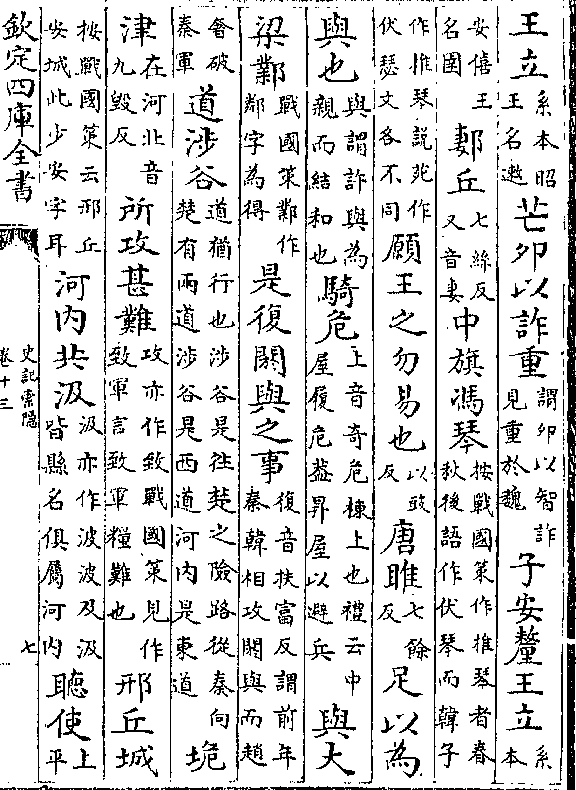 王立系本昭王名遫芒卯以詐重謂卯以智詐見重於魏子安釐王立系本
安僖王名圉郪丘七絲反又音妻中旗馮琴按戰國策作推琴者春秋後語作伏琴而韓子
作推琴説苑作伏瑟文各不同願王之勿易也以豉反唐雎七餘反足以為
與也與謂許與為親而結和也騎危上音奇危棟上也禮云中屋履危蓋昇屋以避兵與大
梁鄴戰國策鄴作鄰字為得是復閼與之事復音扶富反謂前年秦韓相攻閼與而趙
奢破秦軍道涉谷道猶行也涉谷是徃楚之險路從秦向楚有兩道涉谷是西道河内是東道垝
津在河北音九毀反所攻甚難攻亦作致戰國策見作致軍言致軍糧難也邢丘城
按戰國策云邢丘安城此少安字耳河内共汲汲亦作波波及汲皆縣名俱屬河内聽使上平
欽定四庫全書
史記索隱
卷十三
七